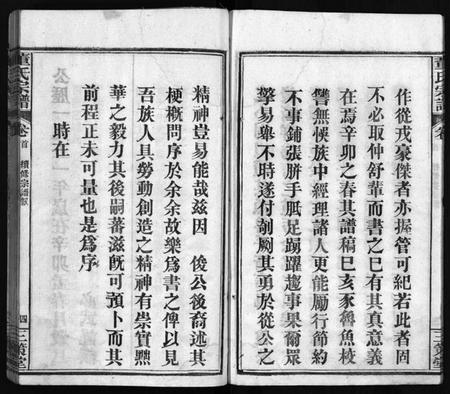 董氏宗譜
卷
作從戎豪傑者亦握管可紀若此者固
不必取仲舒輩而書之已有其真意義
在焉辛卯之春其譜稿已亥豕魯魚校
讐無悞族中經理諸人更能勵行節約
不事鋪張胼手胝足踴躍趨事果爾眾
擎易舉不時遂付剞劂其勇於從公之
三策堂
精神豈易能哉茲因　俊公後裔述其
梗概問序於余余故樂為書之俾以見
吾族人具勞動創造之精神有崇實黜
華之毅力其後嗣蕃滋旣可預卜而其
前程正未可量也是為序
時在
公歷一
一年歲在辛卯
董氏宗譜
卷首
續修宗譜序
四
三策堂